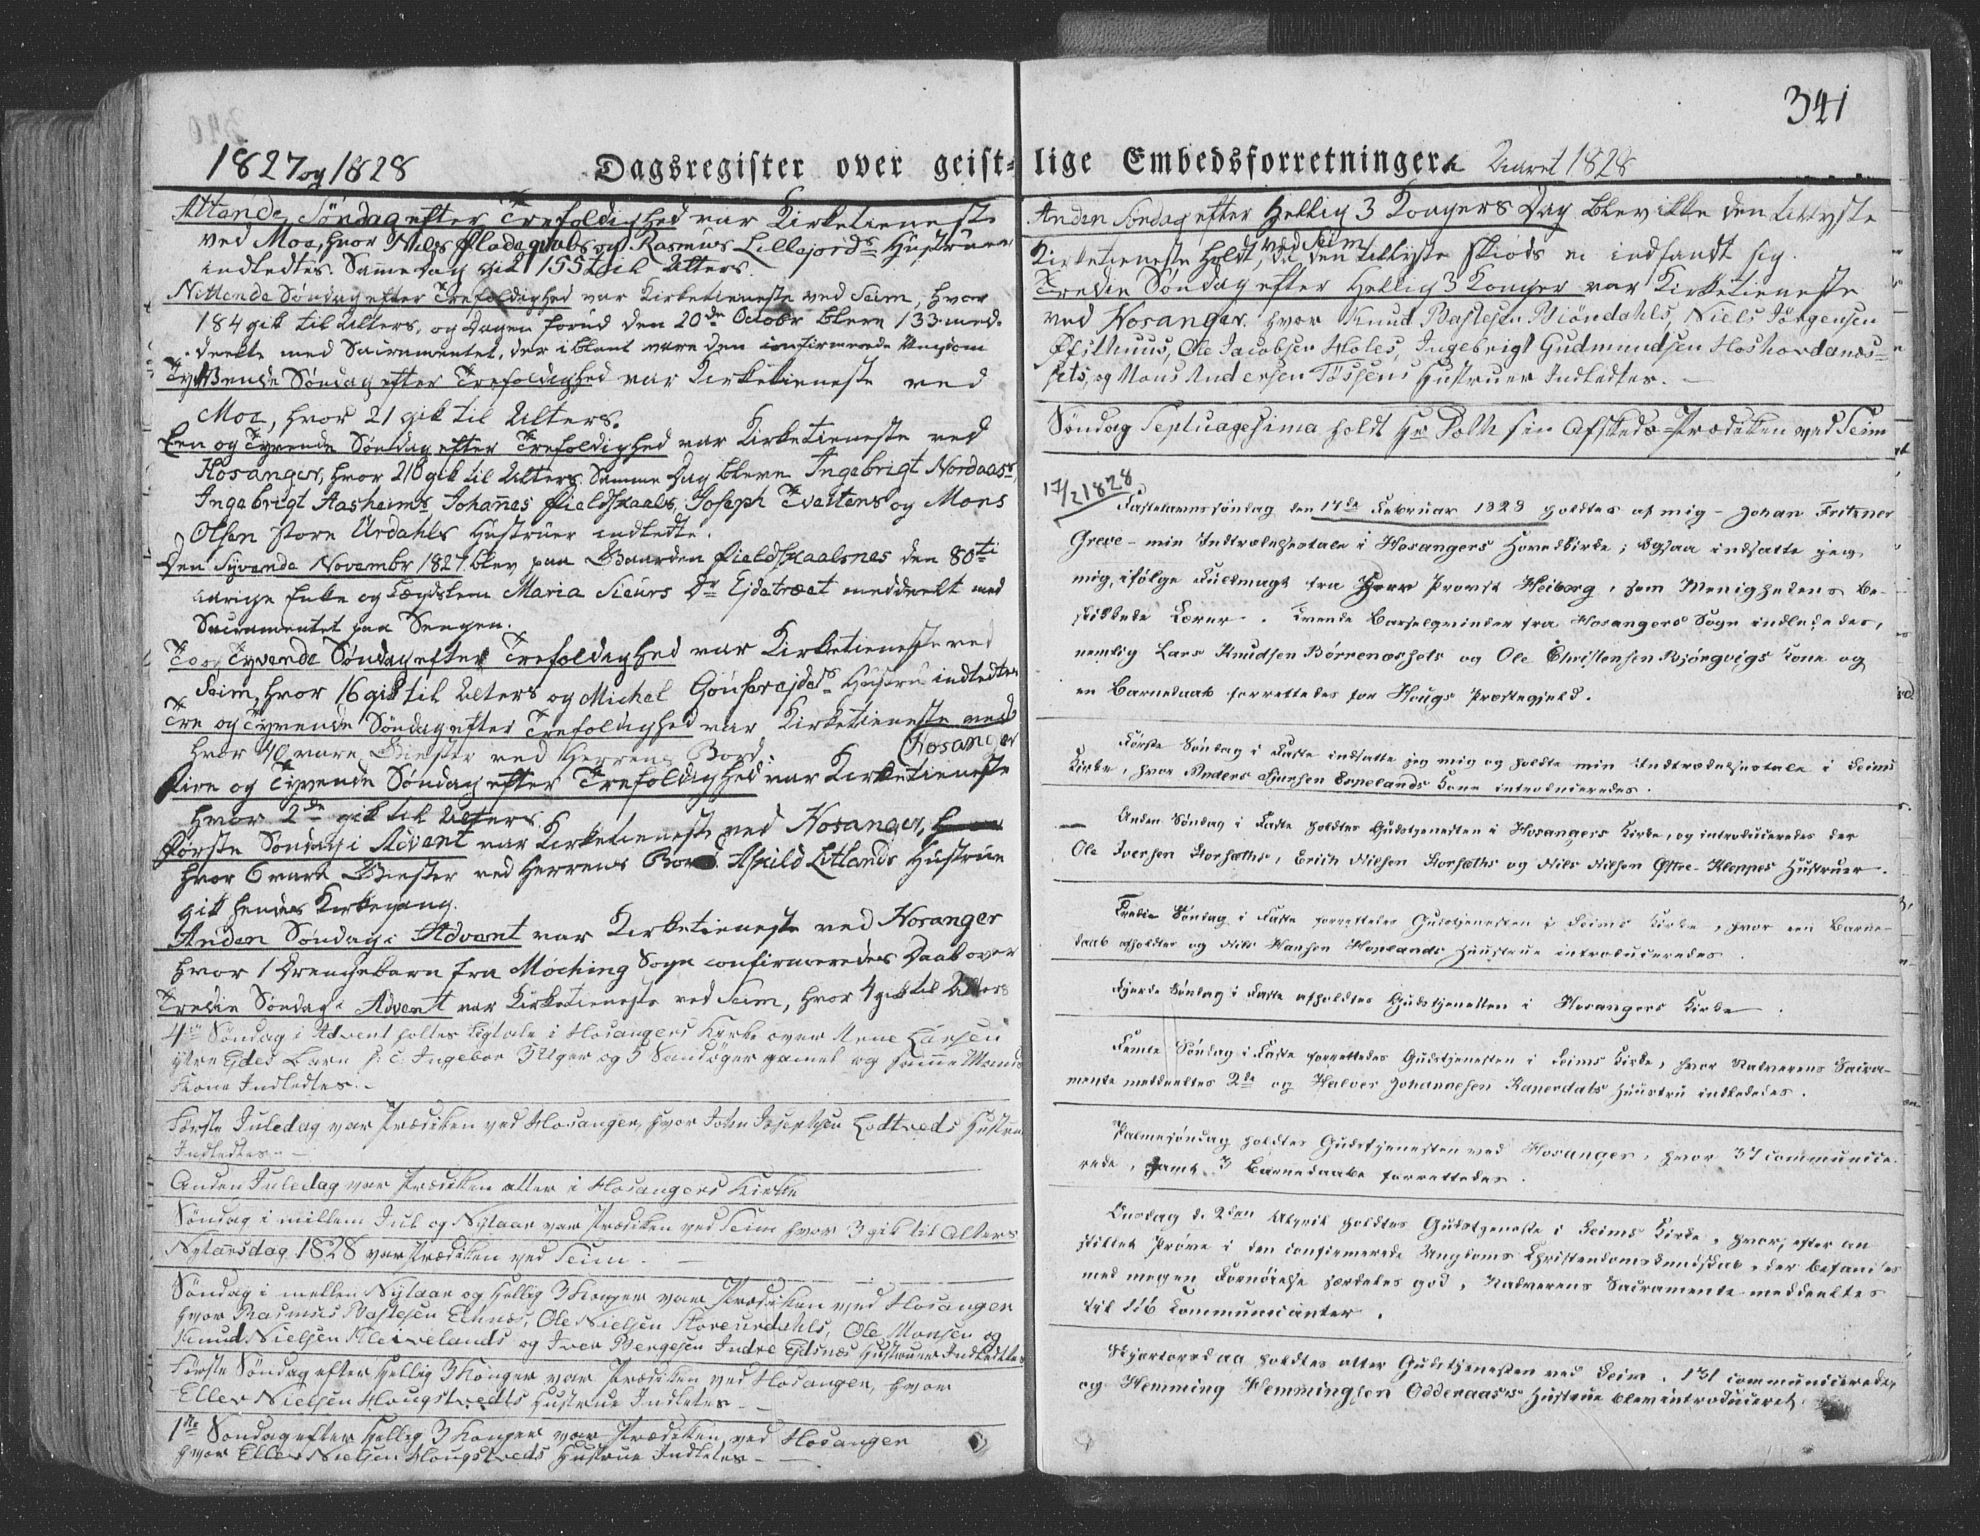 341
1827 og 1828 Dagsregister over geist-
Attende Søndag efter Trefoldighed var Kirketieneste
ved Moe, hvor Niels og Rasmus Lillejords Hüstrüer
indledtes. Samme Dag gik 155 til Alters.
Nittende Søndag efter Trefoldighed var Kirketieneste ved Seim, hvor
184 gik til Alters, og Dagen forud den 20de Octobr bleve 133 med-
deelte med Sacramentet, der iblant vare den confirmerede Ungdom
Tyvende Søndag efter Trefoldighed var Kirketieneste ved
Moe, hvor 21 gik til Alters.
Een og Tyvende Søndag efter Trefoldighed var Kirketieneste ved
Hosanger, hvor 218 gik til Alters. Samme Dag bleve Ingebrigt Nordaas,
Ingebrigt Aasheims, Johannes Fieldskaals, Joseph Tveitens og Mons
Olsen store Urdahls Hüstrüer indledte.
Den Syvende Novembr 1827 blev paa Gaarden Fieldskaalsnes den 80ti
aarige Enke og Lægdslem Maria Sieurs Dr Ejdetræet meddeelt med
Sacramentet paa Sengen.
To og Tyvende Søndag efter Trefoldighed var Kirketieneste ved
Seim, hvor 16 gik til Alters og Michel Hustru indledtes
Tre og Tyvende Søndag efter Trefoldighed var Kirketieneste ved
hvor 40 vare Giester ved Herrens Bord. Hosanger
Fire og Tyvende Søndag efter Trefoldighed var Kirketieneste
hvor 2de gik til Alters.
Første Søndag i Advent var Kirketieneste ved Hosanger,
hvor 6 vare Giester ved Herrens Bord. Askild Lotlands Hustrue
gik hendes Kirkegang.
Anden Søndag i Advent var Kirketieneste ved Hosanger
hvor 1 Drengebarn fra Møching Sogn confirmeredes Daab over
Tredie Søndag i Advent var Kirketieneste ved Seim, hvor 4 gik til Alters
4de Søndag i Advent holtes Ligtale i Hosangers Kirke over Arne Larsen
ytre Eides Barn s: c: Ingebor 3 Uger og 5 Samme Mands
Kone Indledtes.-
Første Juledag var Prædiken ved Hosanger, hvor John Josephsen Lodtveds Hustrue
Indledtes.-
Anden Juledag var Prædiken atter i Hosangers Kirke
Søndag i millem Jul og Nytaar var Prædiken ved Seim hvor 3 gik til Alters
Nytaarsdag 1828 var Prædiken ved Seim. -
Søndag i mellem Nytaar og Hellig 3 Konger var Prædiken ved Hosanger
hvor Rasmus Bastesen Eknæs, Ole Nielsen Storeurdahls, Ole Monsen og
Knud Nielsen Kleivelands og Iver Bergesen Indre Eidsnæs Hustruer Indledtes
Første Søndag efter Hellig 3 Konger var Prædiken ved Hosanger, hvor
Eller Nielsen Hougstvedts Hustrue Indletes -
1ste Søndag efter Hellig 3 Konger var Prædiken ved Hosanger
hvor Eller Nielsen Hougstveds Hustrue Indletes -
lige Embedsforretninger. Aaret 1828
Anden Søndag efter Hellig 3 Kongers Dag blev ikke den tillyste
Kirketieneste holdt ved Seim, da den tillyste Skiods ei indfandt sig.
Tredie Søndag efter Hellig 3 Konger var Kirketieneste
ved Hosanger. hvor Knud Bastesen Biöndahls, Niels Jörgensen
Ole Jacobsen Holes, Ingebrigt Gudmundsen
og Mons Andersen Tössens Hustruer Indledtes. -
Søndag Septuagesima holdt Hr. Dolk sin Afskeds-Prædiken ved Seim
17/2 1828
Fastelavnssöndag den 17de Februar 1828 holdtes af mig - Johan Fritzner
Greve - min Indtrædelsestale i Hosangers Hovedkirke; ogsaa indsatte jeg
mig, ifölge Fuldmagt fra Herr Provst Heiberg, som Menighedens be-
skikkede Lærer. Tvende Barselqvinder fra Hosangers Sogn indlededes,
nemlig Lars Knudsen Börrenæshets og Ole Christensen Bjørgvigs Kone og
en Barnedaab forrettedes for Hougs Præstegjeld.
Förste Söndag i Faste indsatte jeg mig og holdte min Indtrædelsestale i Seims
Kirke, hvor Anders Espelands Kone introduceredes.
Anden Söndag i Faste holdtes Gudstjenesten i Hosangers Kirke, og introduceredes der
Ole Iversen Horsæths, Erich Nilsen Horsæths og Nils Nilsen Østre-Kloppes Hustruer.
Tredie Söndag i Faste forrettedes Gudstjenesten i Seims Kirke, hvor een Barne-
daab afholdtes og Nils Hansen Hoplands Huustrue introduceredes.
Fjerde Söndag i Faste afholdtes Gudstjenesten i Hosangers Kirke.
Femte Söndag i Faste forrettedes Gudstjenesten i Seims Kirke, hvor Nadverens Sacra-
mente meddeeltes 2de og Halvor Johannesen Huustru indlededes.
Palmesöndag holdtes Gudstjenesten ved Hosanger, hvor 37 communice-
rede, samt 3 Barnedaabe forrettedes.
Onsdag d. 2den April holdtes Gudstjeneste i Seims Kirke, hvor, efter an
stillet Pröve i den confirmerede Ungdoms Christendomskundskab, der befandtes
med megen Fornöielse særdeles god, Nadverens Sacramente meddeeltes
til 116 Communicanter.
Skjærtorsdag holdtes atter Gudstjenesten ved Seim. 131 communicerede,
og Hemming Hemmingsen Odderaas's Hustrue blev introduceret.